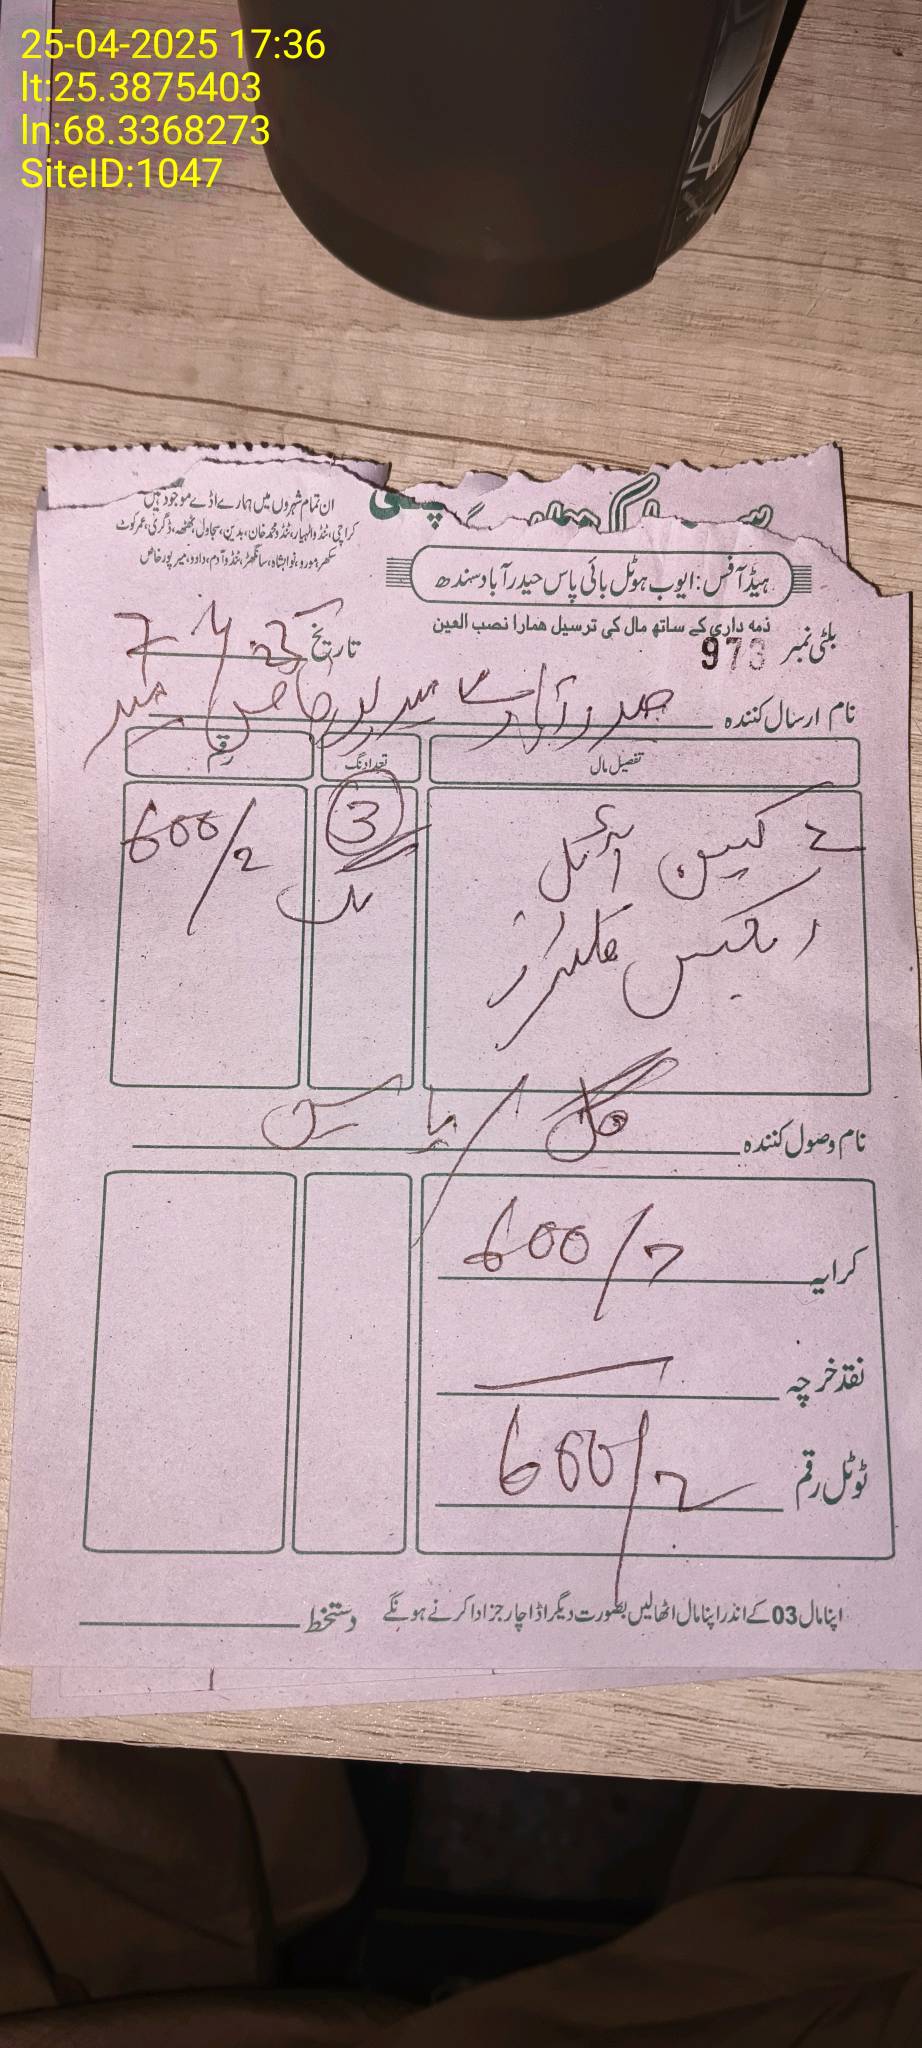 25-04-2025 17:36
lt:25.3875403
ln:68.3368273
SiteID:1047
ان تمام شہروں میں ہمارے اڈے موجود ہیں
کراچی، ٹنڈوالہیار، ٹنڈو محمد خان، بدین، سجاول، ٹھٹھہ، ڈگری، عمرکوٹ
سکھر، مورو، نوابشاہ، سانگھڑ، ٹنڈوآدم، دادو، میرپورخاص
ہیڈ آفس: ایوب ہوٹل بائی پاس حیدرآباد سندھ
ذمہ داری کے ساتھ مال کی ترسیل ہمارا نصب العین
بلٹی نمبر 973
تاریخ
نام ارسال کنندہ حیدرآباد سے میرپورخاص
تفصیل مال تعداد نگ رقم
2 کین آئل 3 نگ 600/
نام وصول کنندہ گل
کرایہ 600/
نقد خرچہ
ٹوٹل رقم 600/
اپنا مال 03 کے اندر اپنا مال اٹھالیں بصورت دیگر اڈا چارجز ادا کرنے ہونگے
دستخط